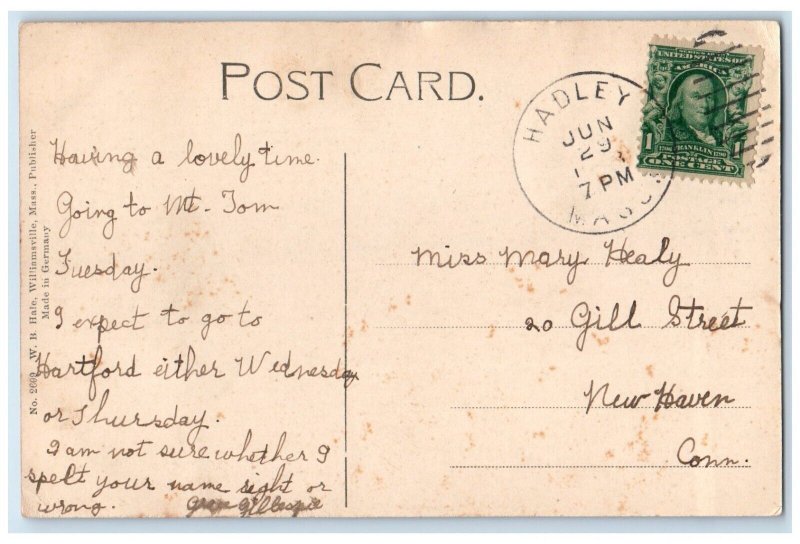 POST CARD.
HADLEY
JUN
29
7 PM
MASS.
UNITED STATES OF
AMERICA
1 1706 FRANKLIN 1790 1
POSTAGE
ONE CENT
Having a lovely time.
Going to Mt. Tom
Tuesday.
I expect to go to
Hartford either Wednesday
or Thursday.
I am not sure whother I
spelt your name right or
wrong.
Gillespie
Miss Mary Healy
20 Gill Street
New Haven
Conn.
No. 2699 W. B. Hale, Williamsville, Mass., Publisher
Made in Germany